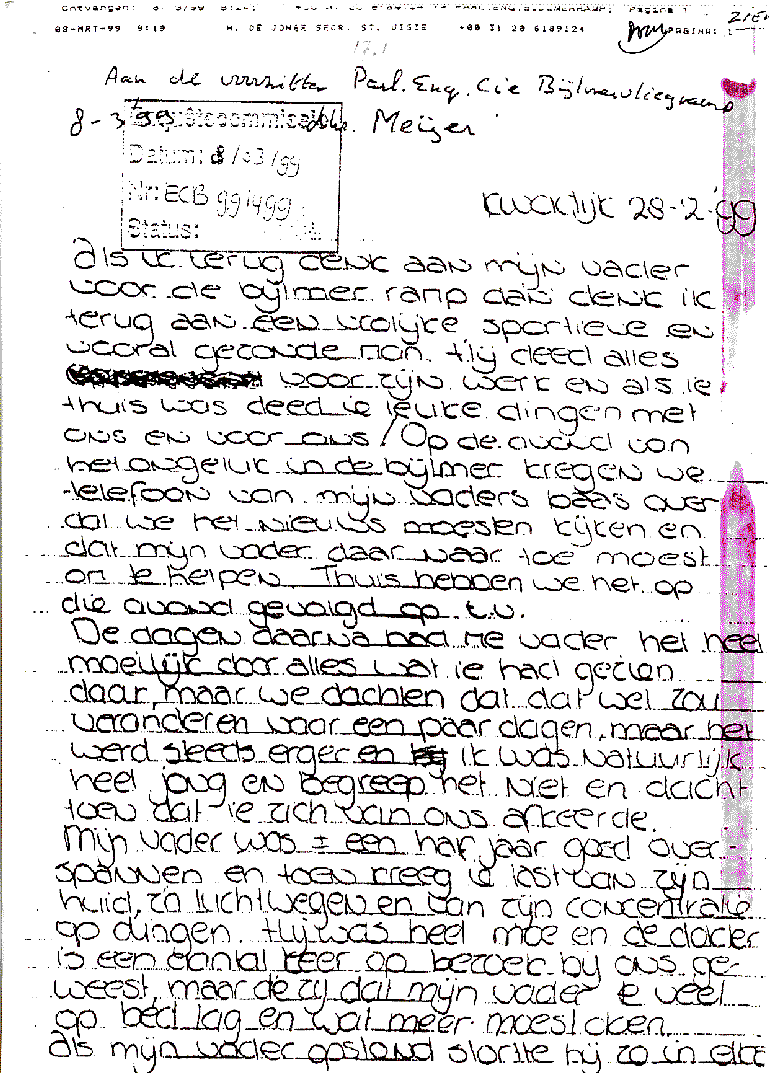 08-MRT-99 9:19 H. DE JONGE SECR. ST. VISIE +00 31 20 6189124 PAGINA: 1
17.1
Aan de voorzitter Parl. Enq. Cie Bijlmervliegramp
8-3-99 Dhr. Meijer
Enquêtecommissie
Datum: 8/03/99
Nr: ECB 99/499
Status:
Kwcklijk 28-'2-'99
Als ik terug denk aan mijn vader
voor de bijlmer ramp dan denk ik
terug aan een vrolijke sportieve en
vooral gezonde man. Hij deed alles
voor zijn werk en als ie
thuis was deed ie leuke dingen met
ons en voor ons! Op de avond van
het ongeluk in de bijlmer kregen we
telefoon van mijn vaders baas over
dat we het nieuws moesten kijken en
dat mijn vader daar naar toe moest
om te helpen. Thuis hebben we het op
die avond gevolgd op t.v.
De dagen daarna had me vader het heel
moeilijk door alles wat ie had gezien
daar, maar we dachten dat dat wel zou
veranderen voor een paar dagen, maar het
werd steeds erger en ik was natuurlijk
heel jong en begreep het niet en dacht
toen dat ie zich van ons afkeerde.
Mijn vader was ± een half jaar goed over-
spannen en toen kreeg ie last van zijn
huid, z'n luchtwegen en van zijn concentratie
op dingen. Hij was heel moe en de dokter
is een aantal keer op bezoek bij ons ge-
weest, maar die zij dat mijn vader te veel
op bed lag en wat meer moest doen
als mijn vader opstond stortte hij zo in elka